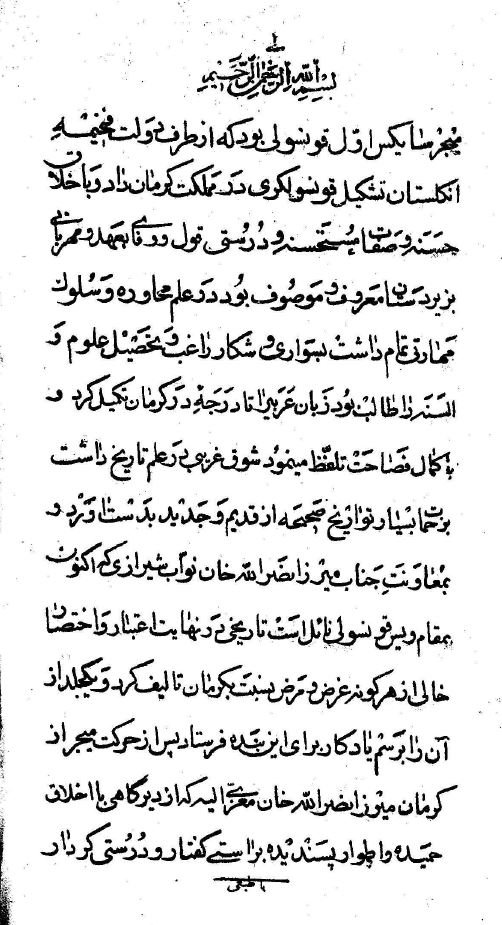 ۱
بسم الله الرحمن الرحیم
میجر سایکس اول قونسولی بود که از طرف دولت فخیمهٔ
انکلستان تشکیل قونسولکری در مملکت کرمان داد و با خلاق
حسنه و صفات مستحسنه و درستی قول و وفا بعهد و مهربانی
بزیردستان معروف و موصوف بود در علم محاوره و سلوک
مهارتی تمام داشت بسواری و شکار راغب و بتحصیل علوم و
السنه را طالب بود زبان عربی را تا درجهٔ در کرمان تکمیل کرد و
با کمال فصاحت تلفظ مینمود شوق غریبی در علم تاریخ داشت
بزحمات بسیار تواریخ صحیحه از قدیم و جدید بدست اورد و
بمعاونت جناب میرزا نصرالله خان نواب شیرازی که اکنون
بمقام ویس قونسولی نائل است تاریخی در نهایت اعتبار و اختصار
خالی از هر کونه غرض و مرض نسبت بکرمان تالیف کرد و یکجلد از
آن را برسم یادکار برای این بنده فرستاد پس از حرکت میجر از
کرمان میرزا نصرالله خان معزی الیه که از دیرکاهی با اخلاق
حمیده و اطوار پسندیده براستی کفتار و درستی کردار